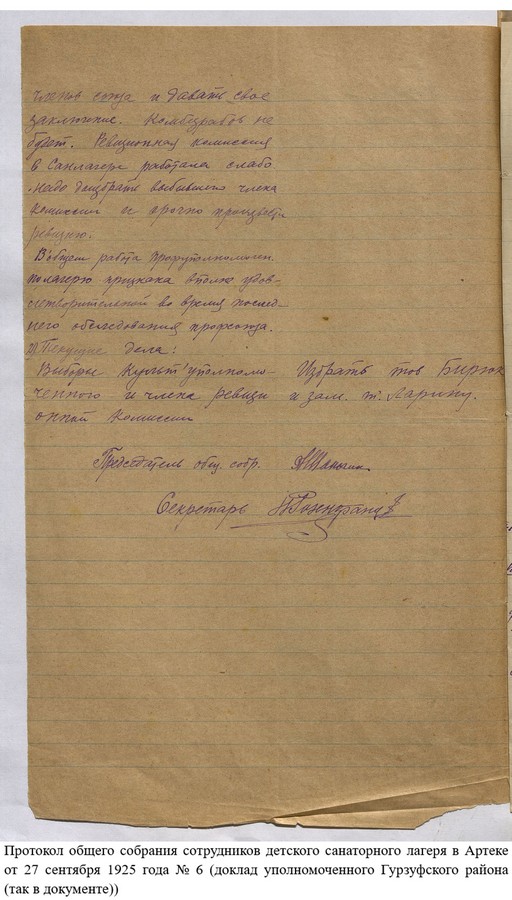 членов союза и давать свое
заключение. Комбезработ не
будет. Ревизионная комиссия
в Санлагере работала слабо
надо доизбрать выбывшего члена
комиссии и срочно произвести
ревизию.
Вобщем работа профуполномочен.
по лагерю признана вполне удов-
летворительной во время послед-
него обследования профсоюза.
2) Текущие дела:
Выборы Культ'уполномо- Избрать тов Бирюк
ченного и члена ревизи и зам. т. Ларину.
онной Комиссии
Председатель общ. собр.
Секретарь
Протокол общего собрания сотрудников детского санаторного лагеря в Артеке
от 27 сентября 1925 года № 6 (доклад уполномоченного Гурзуфского района
(так в документе))